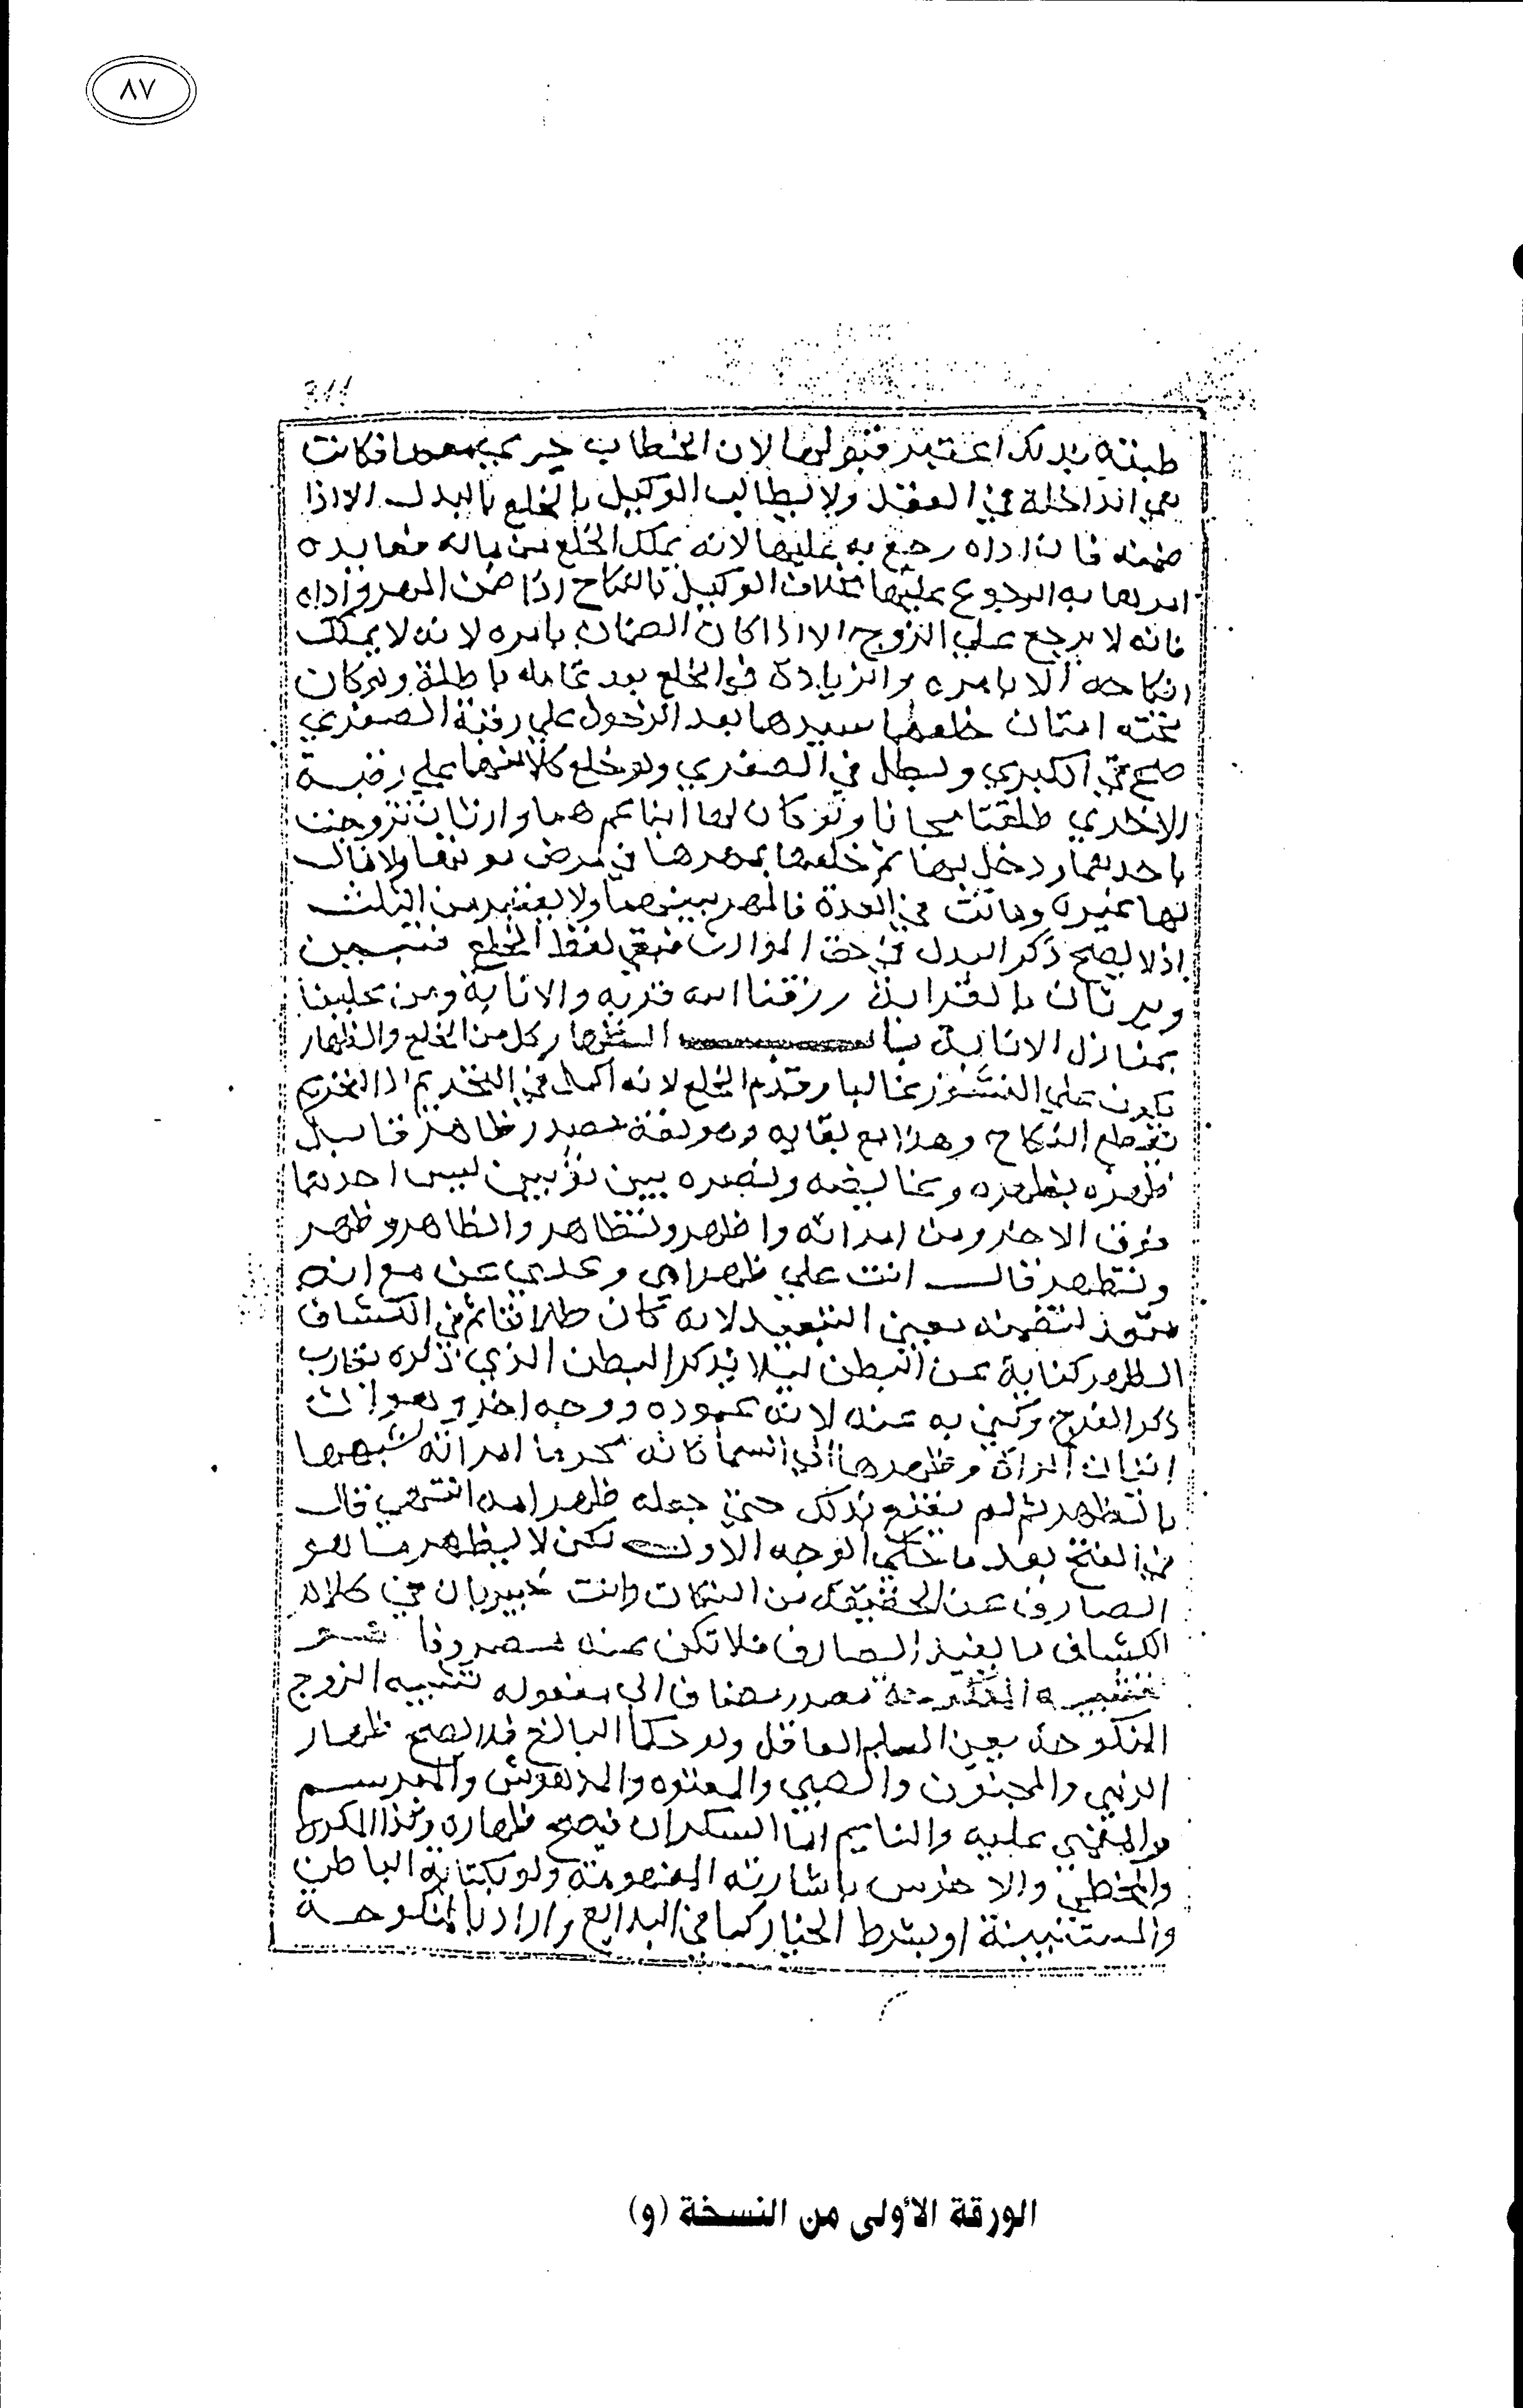 ٨٧
طبته بذلك اعتبر قبولها لان الخطاب جري معها فكانت
هي الداخلة في العقد ولا يطالب الوكيل بالخلع بالبدل الا اذا
ضمنه فان اداه رجع به عليها لانه يملك الخلع من ماله ففايده
امرها به الرجوع عليها بخلاف الوكيل بالنكاح اذا ضمن المهر واداه
فانه لا يرجع علي الزوج الا اذا كان الضمان بامره لانه لا يملك
انكاحه الا بامره والزيادة في الخلع بعد تمامه باطلة ولو كان
تحته امتان خلعهما سيدهما بعد الدخول علي رقبة الصغري
صح في الكبري وبطل في الصغري ولو خلع كلا منهما علي رقبة
الاخري طلقتا مجانا ولو كان لها ابنا عم هما وارثان تزوجت
باحدهما ودخل بها ثم خلعها بمهرها في مرض موتها ولا مال
لها غيره وماتت في العدة فالمهر بينهما ولا يعتبر من الثلث
اذ لا يصح ذكر البدل في حق الوارث فبقي لفظ الخلع فتبين
ويرثان بالقرابة رزقنا الله قربه والانابة ومن علينا
بمنازل الانابة باب الظهار كل من الخلع والظهار
يكون علي النشوز غالبا وقدم الخلع لانه اكمل في التحريم اذ التحريم
بقطع النكاح وهذا مع بقايه وهو لغة مصدر ظاهر قابل
ظهره بظهره وغايضه ونصره بين ثوبين لبس احدهما
فوق الاخر ومن امراته واظهر وتظاهر واظاهر وظهر
وتظهر قال انت علي ظهر امي وعدي بمن مع انه
متعد لتضمنه معني التبعيد لانه كان طلاقا ثم في الكشاف
الظهر كناية عن البطن ليلا يذكر البطن الذي ذكره يقارب
ذكر الفرج وكني به عنه لانه عموده ووجه اخر وهو ان
اتيان المراة وظهرها الي السما كانه محرما امراته شبهها
بالظهر ثم لم يقنع بذلك حتي جعله ظهر امه انتهي قال
في الفتح بعد ما حكي الوجه الاول لكن لا يظهر ما هو
الصارف عن الحقيقة من النكات وانت خبير بان في كلام
الكشاف ما يفيد الصارف فلا تكن عنه مصروفا شعر
تشبيه المنكوحة مصدر مضاف الي مفعوله تشبيه الزوج
المنكوحة يعني المسلم العاقل ولو حكما البالغ فلا يصح ظهار
الذمي والمجنون والصبي والمعتوه والمدهوش والمبرسم
والمغمي عليه والنايم اما السكران فيصح ظهاره وكذا المكره
والمخطي والاخرس باشارته المفهومة ولو بكتابة الباطن
والمستبينة او بشرط الخيار كما في البدايع واراد بالمنكوحة
الورقة الأولى من النسخة (و)